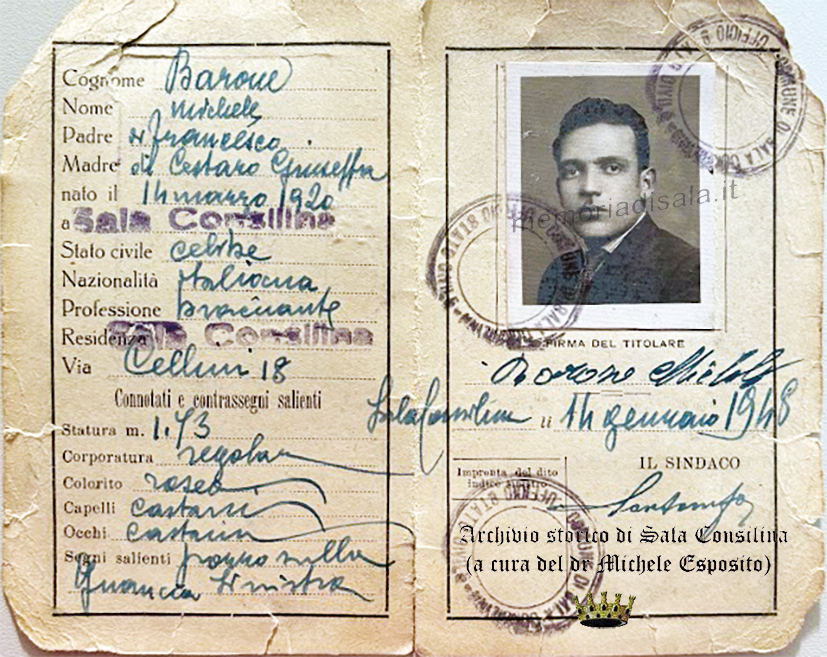 Cognome Barone
Nome Michele
Padre di Francesco
Madre di Cestaro Giuseppa
nato il 14 marzo 1920
a Sala Consilina
Stato civile celibe
Nazionalità Italiana
Professione bracciante
Residenza Sala Consilina
Via Cellini 18
Connotati e contrassegni salienti
Statura m. 1.73
Corporatura regolare
Colorito roseo
Capelli castani
Occhi castani
Segni salienti sulla
Guancia Sinistra
memoriadisala.it
FIRMA DEL TITOLARE
Barone Michele
Sala Consilina li 14 gennaio 1948
Impronta del dito
indice sinistro
IL SINDACO
Archivio storico di Sala Consilina
(a cura del dr Michele Esposito)
COMUNE DI SALA CONSILINA
UFFICIO STATO CIVILE